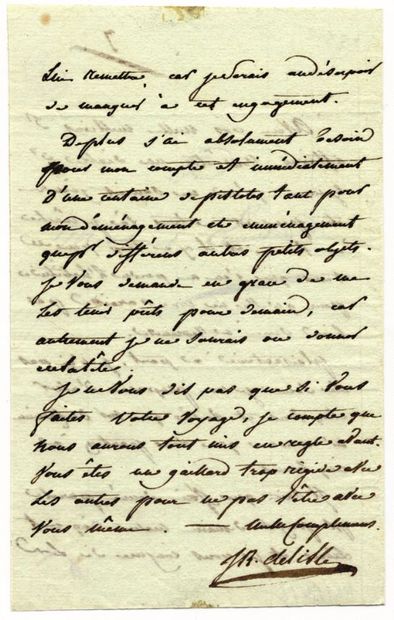 lui remettre, car je serais au désespoir
de manquer à cet engagement.
Deplus j'ai absolument besoin
pour mon compte et immédiatement
D'une centaine de pistoles tant pour
mon déménagement et emménagement
que pr. différens autres petits objets.
Je vous demande en grace de me
les tenir prêts pour demain, car
autrement je ne saurais où donner
de la tête.
Je ne vous dis pas que si vous
faites votre voyage, je compte que
nous aurons tout mis en règle avant.
Vous êtes un gaillard trop rigide avec
les autres pour ne pas l'être avec
vous même. — Mille Complimens.
de Lisle